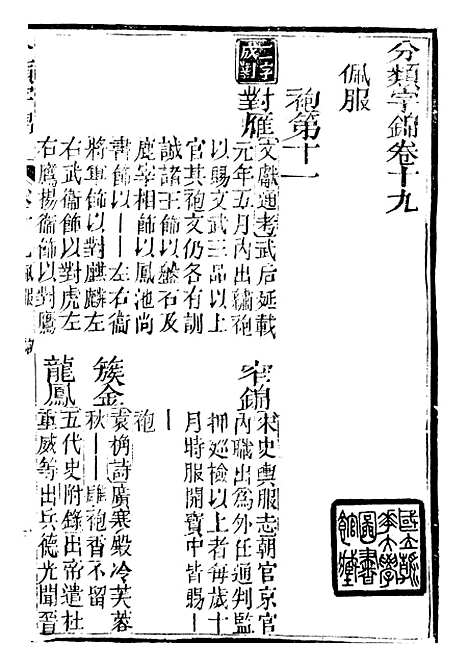 分類字錦卷十九
佩服
袍第十一
二字成對
對雁
文獻通考武后延載
元年五月內出繡袍
以賜文武三品以上
官其袍文仍各有訓
誡諸王飾以盤石及
鹿宰相飾以鳳池尚
書飾以——左右衞
將軍飾以對麒麟左
右武衞飾以對虎左
右鷹揚衞飾以對鷹
窄錦
宋史輿服志朝官京官
內職出爲外任通判監
押巡檢以上者每歲十
月時服開寶中皆賜—
—
袍
簇金
袁桷詩廣寒殿冷芙蓉
秋——雕袍香不留
龍鳳
五代史附錄出帝遣杜
重威等出兵德光聞晉
大學
圖書
館藏